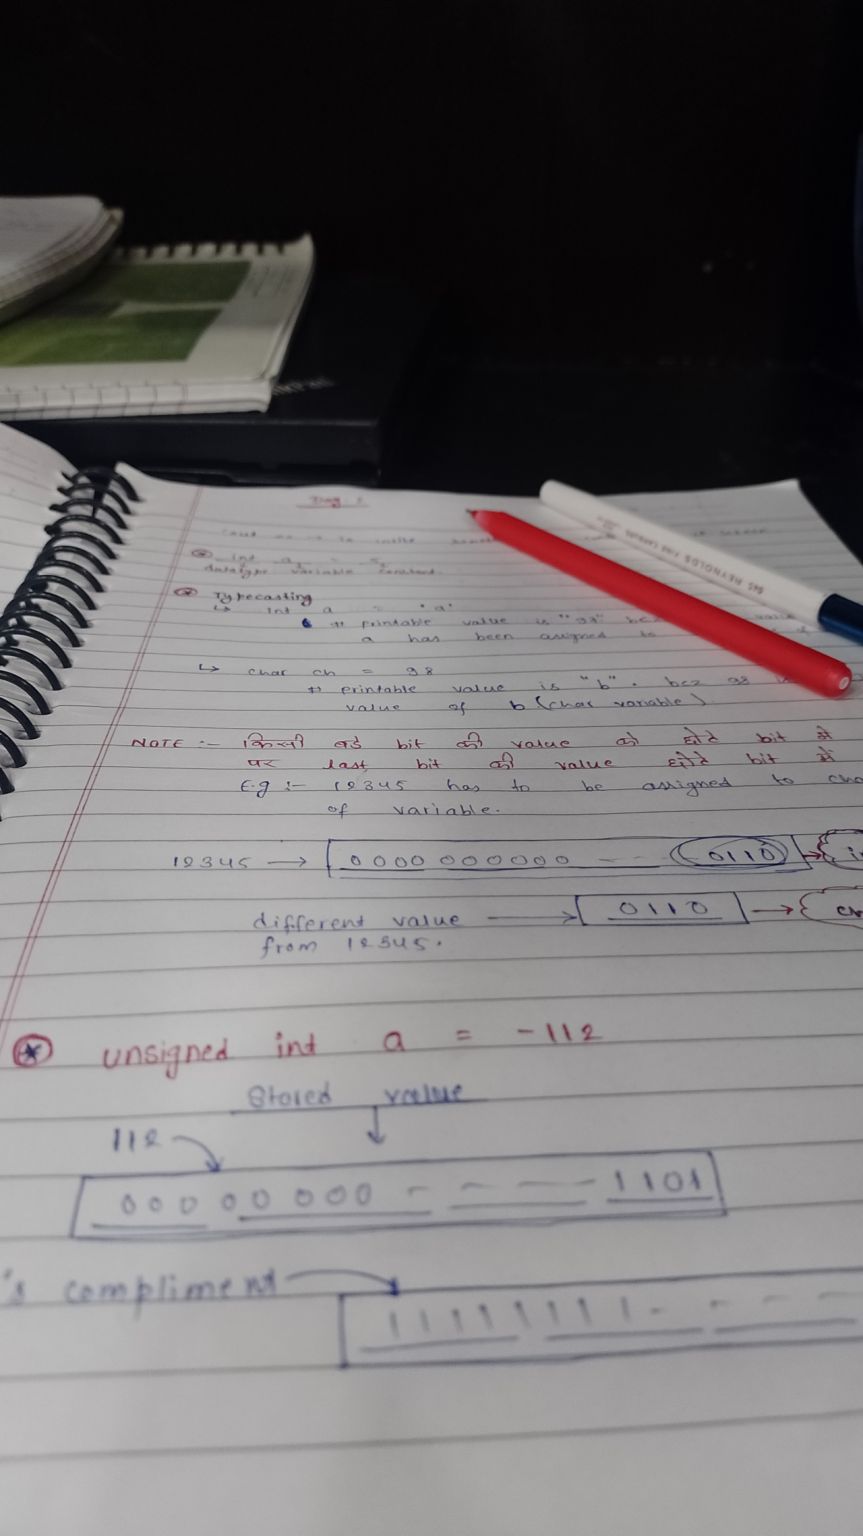 Day
int a = 5
datatype variable constant
Typecasting
↳ int a = 'a'
printable value is "97" value
a has been assigned to
↳ char ch = 98
printable value is "b". bcz 98
value of b (char variable)
NOTE :- किसी बडे bit की value को छोटे bit मे
पर last bit की value छोटे bit में
E.g :- 12345 has to be assigned to cha
of variable.
12345 → 0000 000000 - - 0110 → i
different value → 0110 → ch
from 12345.
unsigned int a = -112
Stored value
112
000 00 000 - - - 1101
's compliment
11111111 - - - -